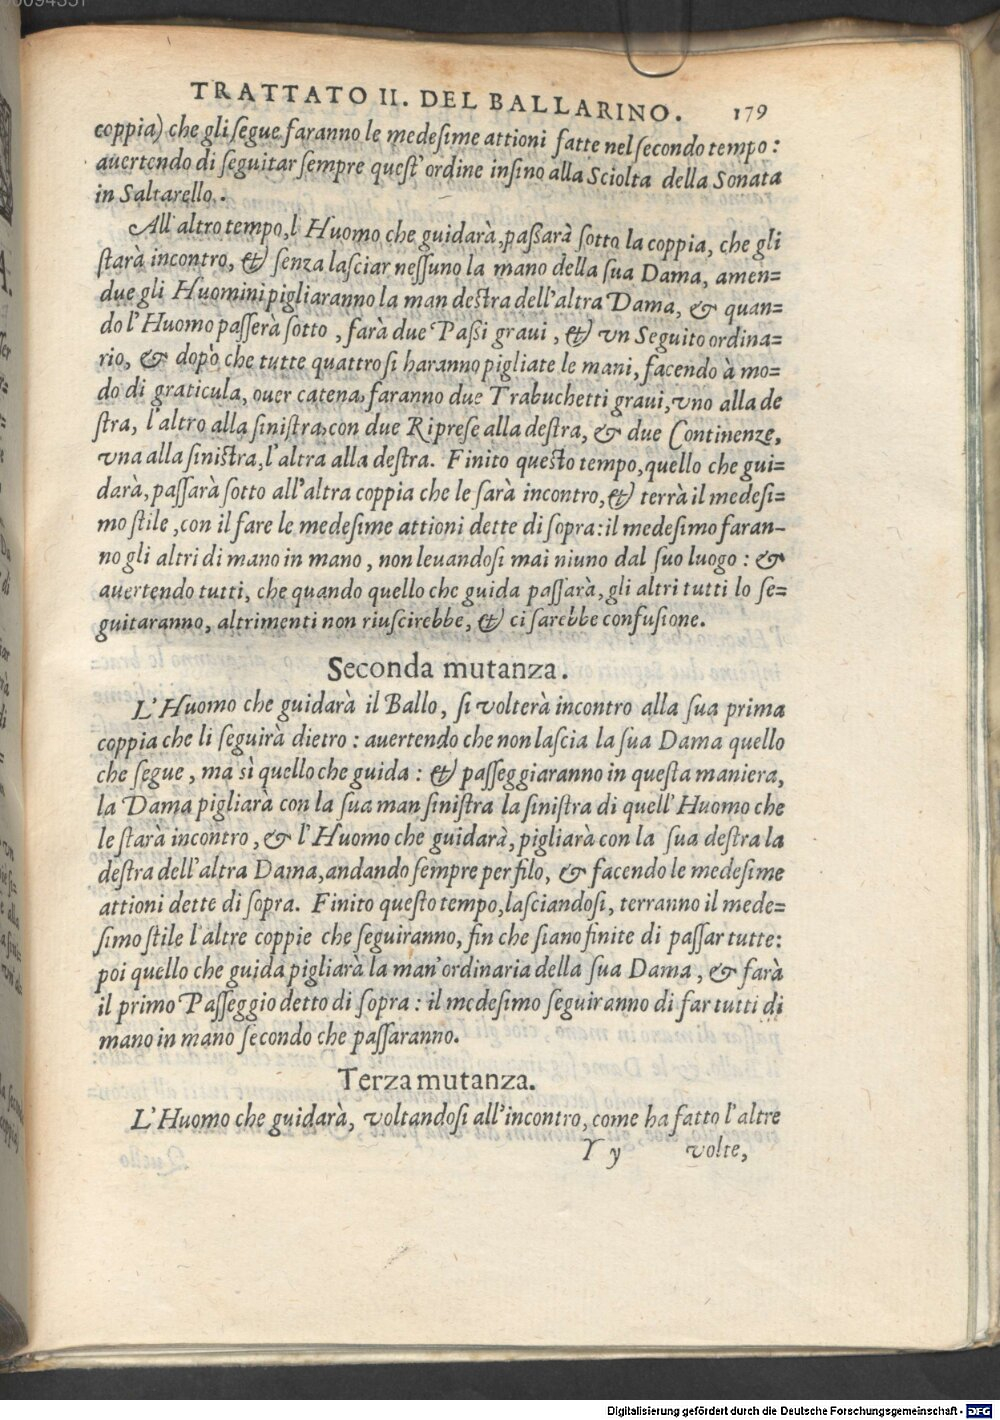 TRATTATO II. DEL BALLARINO. 179
coppia) che gli ſegue faranno le medeſime attioni fatte nel ſecondo tempo:
auertendo di ſeguitar ſempre queſt'ordine inſino alla Sciolta della Sonata
in Saltarello.
All'altro tempo, l'Huomo che guidarà, paßarà ſotto la coppia, che gli
ſtarà incontro, & ſenza laſciar neſſuno la mano della ſua Dama, amen=
due gli Huomini pigliaranno la man deſtra dell'altra Dama, & quan=
do l'Huomo paſſerà ſotto, farà due Paßi graui, & vn Seguito ordina=
rio, & dopò che tutte quattro ſi haranno pigliate le mani, facendo à mo=
do di graticula, ouer catena, faranno due Trabuchetti graui, vno alla de
ſtra, l'altro alla ſiniſtra, con due Ripreſe alla deſtra, & due Continenze,
vna alla ſiniſtra, l'altra alla deſtra. Finito queſto tempo, quello che gui=
darà, paſſarà ſotto all'altra coppia che le ſarà incontro, & terrà il medeſi=
mo ſtile, con il fare le medeſime attioni dette di ſopra: il medeſimo faran-
no gli altri di mano in mano, non leuandoſi mai niuno dal ſuo luogo: &
auertendo tutti, che quando quello che guida paſſarà, gli altri tutti lo ſe=
guitaranno, altrimenti non riuſcirebbe, & ci ſarebbe confuſione.
Seconda mutanza.
L'Huomo che guidarà il Ballo, ſi volterà incontro alla ſua prima
coppia che li ſeguirà dietro: auertendo che non laſcia la ſua Dama quello
che ſegue, ma sì quello che guida: & paſſeggiaranno in queſta maniera,
la Dama pigliarà con la ſua man ſiniſtra la ſiniſtra di quell'Huomo che
le ſtarà incontro, & l'Huomo che guidarà, pigliarà con la ſua deſtra la
deſtra dell'altra Dama, andando ſempre per filo, & facendo le medeſime
attioni dette di ſopra. Finito queſto tempo, laſciandoſi, terranno il mede=
ſimo ſtile l'altre coppie che ſeguiranno, fin che ſiano finite di paſſar tutte:
poi quello che guida pigliarà la man'ordinaria della ſua Dama, & farà
il primo Paſſeggio detto di ſopra: il medeſimo ſeguiranno di far tutti di
mano in mano ſecondo che paſſaranno.
Terza mutanza.
L'Huomo che guidarà, voltandoſi all'incontro, come ha fatto l'altre
Y y volte,
Digitalisierung gefördert durch die Deutsche Forschungsgemeinschaft - DFG